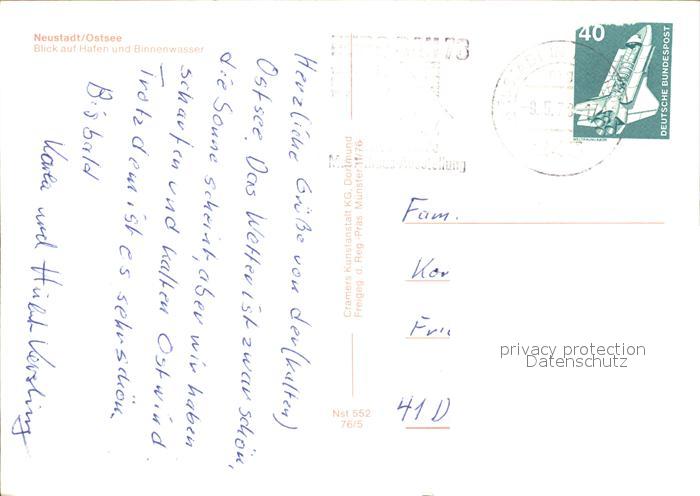 Neustadt/Ostsee
Blick auf Hafen und Binnenwasser
Herzliche Grüße von der (kalten)
Ostsee. Das Wetter ist zwar schön,
die Sonne scheint, aber wir haben
scharfen und kalten Ostwind.
Trotzdem ist es sehr schön.
Bis bald
und
Cramers Kunstanstalt KG, Dortmund
Freigeg. d. Reg.-Präs. Münster 11/76
Nst 552
76/5
40
DEUTSCHE BUNDESPOST
Fam.
Kor
Fri
41 D
privacy protection
Datenschutz